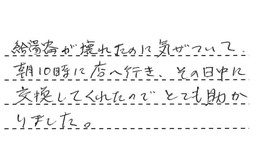 給湯器が壊れたのに気がついて、
朝10時に店へ行き、その日中に
交換してくれたのでとても助か
りました。